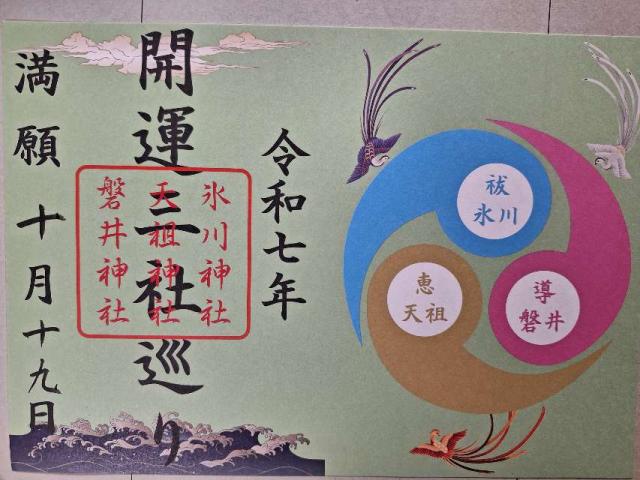 令和七年
開運三社巡り
満願 十月十九日
氷川神社
天祖神社
磐井神社
祓
氷川
恵
天祖
導
磐井